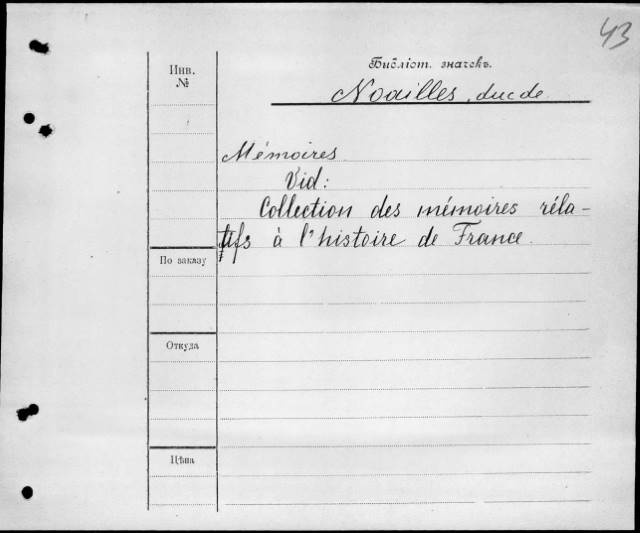 43
Инв.
№
Библіот. значекъ.
Noailles, duc de
Mémoires
Vid:
Collection des mémoires réla-
tifs à l'histoire de France.
По заказу
Откуда
Цѣна